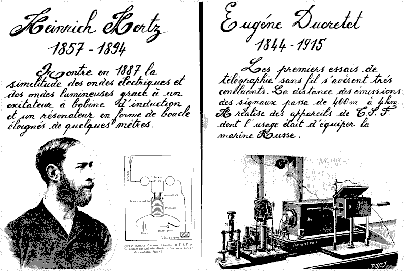 Heinrich Hertz
1857 - 1894
Montre en 1887 la
similitude des ondes électriques et
des ondes lumineuses grace à un
excitateur à bobine d'induction
et un résonateur en forme de boucle
éloignés de quelques mètres.
Eugéne Ducretet
1844 - 1915
Les premiers essais de
télégraphie sans fil s'avèrent très
concluants. La distance des émissions
des signaux passe de 400m à 4km.
Il réalise des appareils de T.S.F
dont l'usage était d'équiper la
marine Russe.